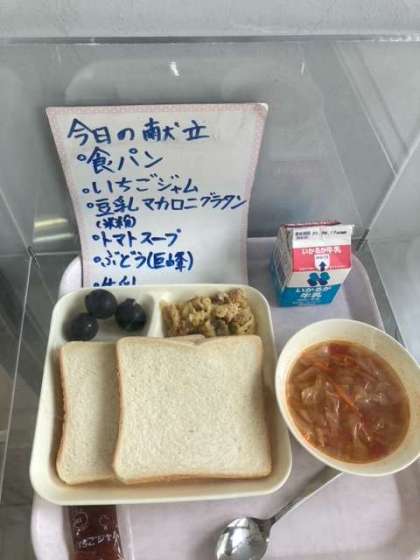 今日の献立
・食パン
・いちごジャム
・豆乳マカロニグラタン
(米粉)
・トマトスープ
・ぶどう(巨峰)
・牛乳
いかるが牛乳
いかるが
牛乳
いちごジャム